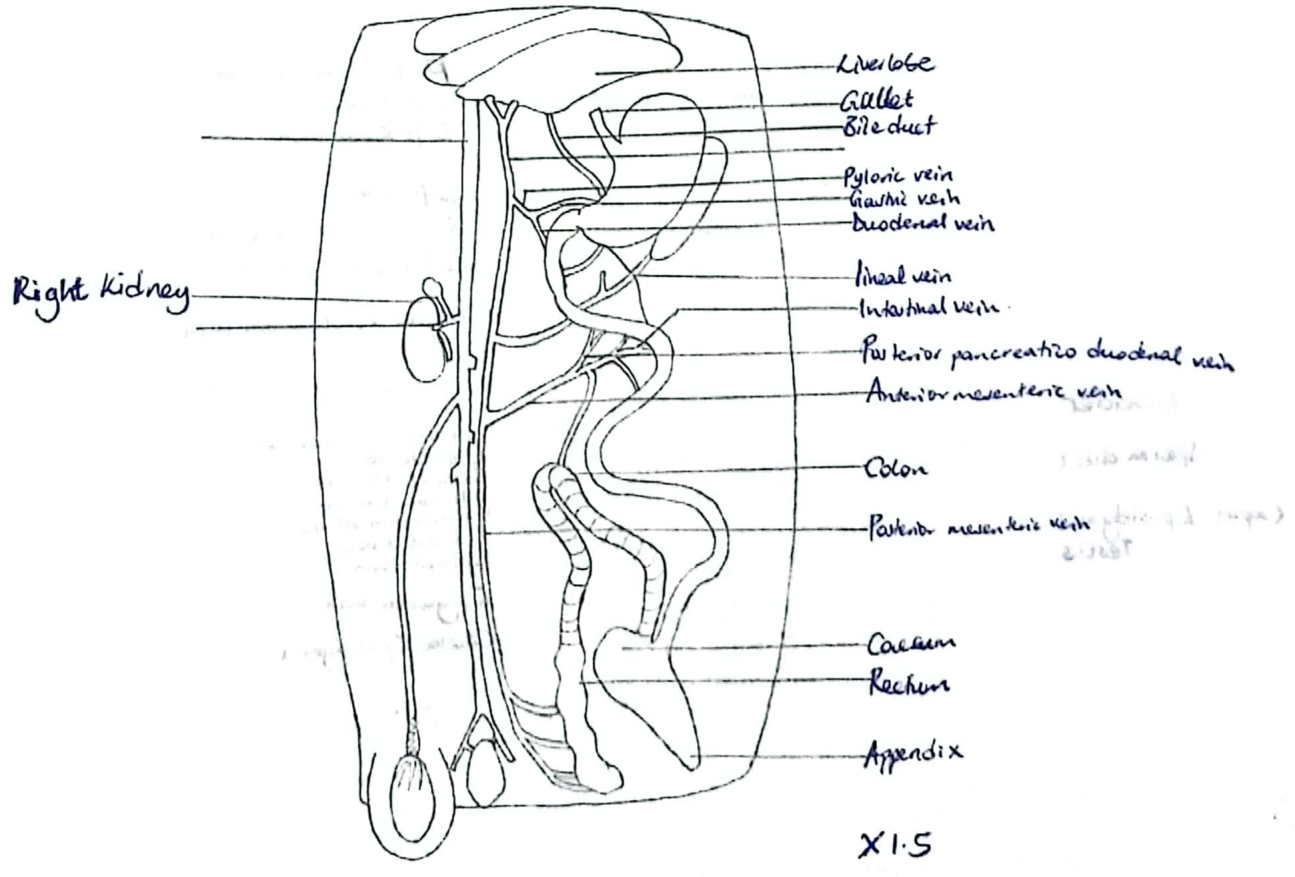 Liver lobe
Gullet
Bile duct
Pyloric vein
Gastric vein
Duodenal vein
Right Kidney
lineal vein
Intestinal vein
Posterior pancreatico duodenal vein
Anterior mesenteric vein
Colon
Posterior mesenteric vein
Caecum
Rectum
Appendix
X1.5